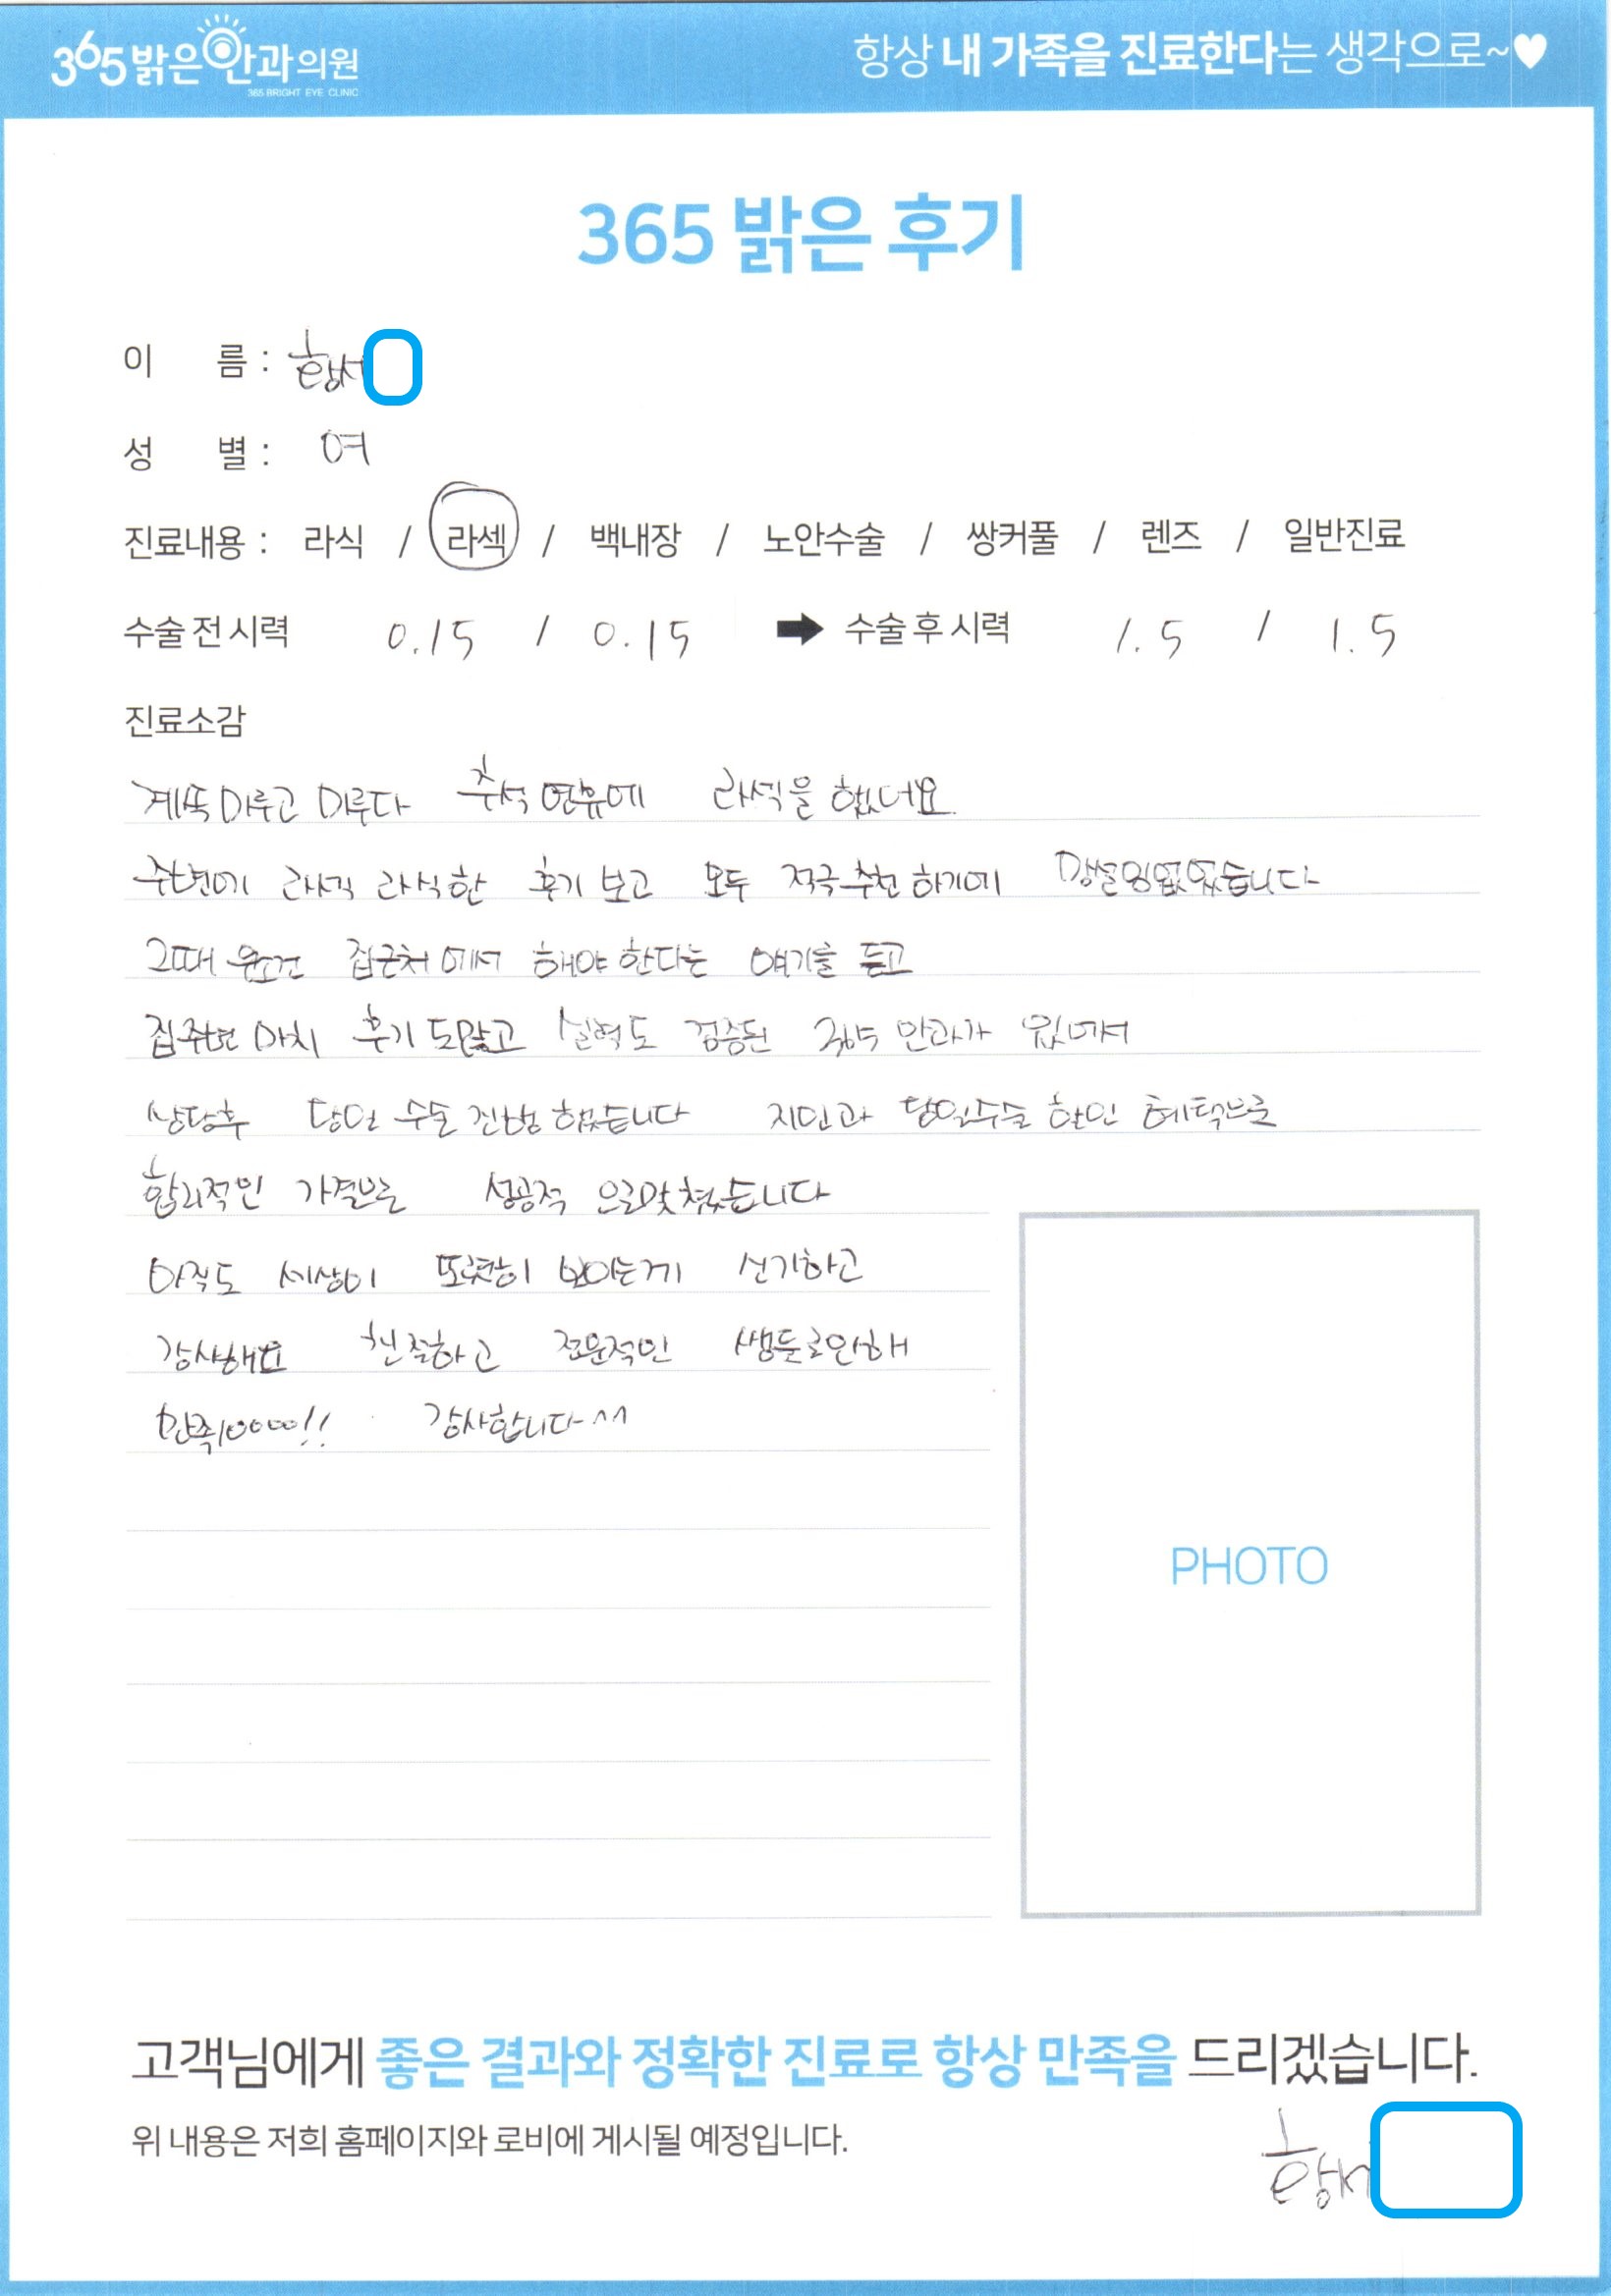 365 밝은안과의원
365 BRIGHT EYE CLINIC
항상 내 가족을 진료한다는 생각으로~♥
365 밝은 후기
이 름 : 황서
성 별 : 여
진료내용 : 라식 / 라섹 / 백내장 / 노안수술 / 쌍커풀 / 렌즈 / 일반진료
수술 전 시력 0.15 / 0.15 ➡ 수술 후 시력 1.5 / 1.5
진료소감
계똑 미루고 미루다 추석 연휴에 라섹을 했네요.
주변에 라섹 라식한 후기 보고 모두 적극추천하기에 망설임없었습니다
그때 무조건 집근처에서 해야한다는 얘기를 듣고
집주변 마치 후기도많고 실력도 검증된 365 안과가 있어서
상담후 당일 수술 진행했습니다 지인과 당일수술 할인 혜택으로
합리적인 가격으로 성공적으로맞쳤습니다
아직도 세상이 또렷히 보이는게 신기하고
감사해요 친절하고 전문적인 쌤들로인해
만족10000!! 감사합니다^^
PHOTO
고객님에게 좋은 결과와 정확한 진료로 항상 만족을 드리겠습니다.
위 내용은 저희 홈페이지와 로비에 게시될 예정입니다.
황서